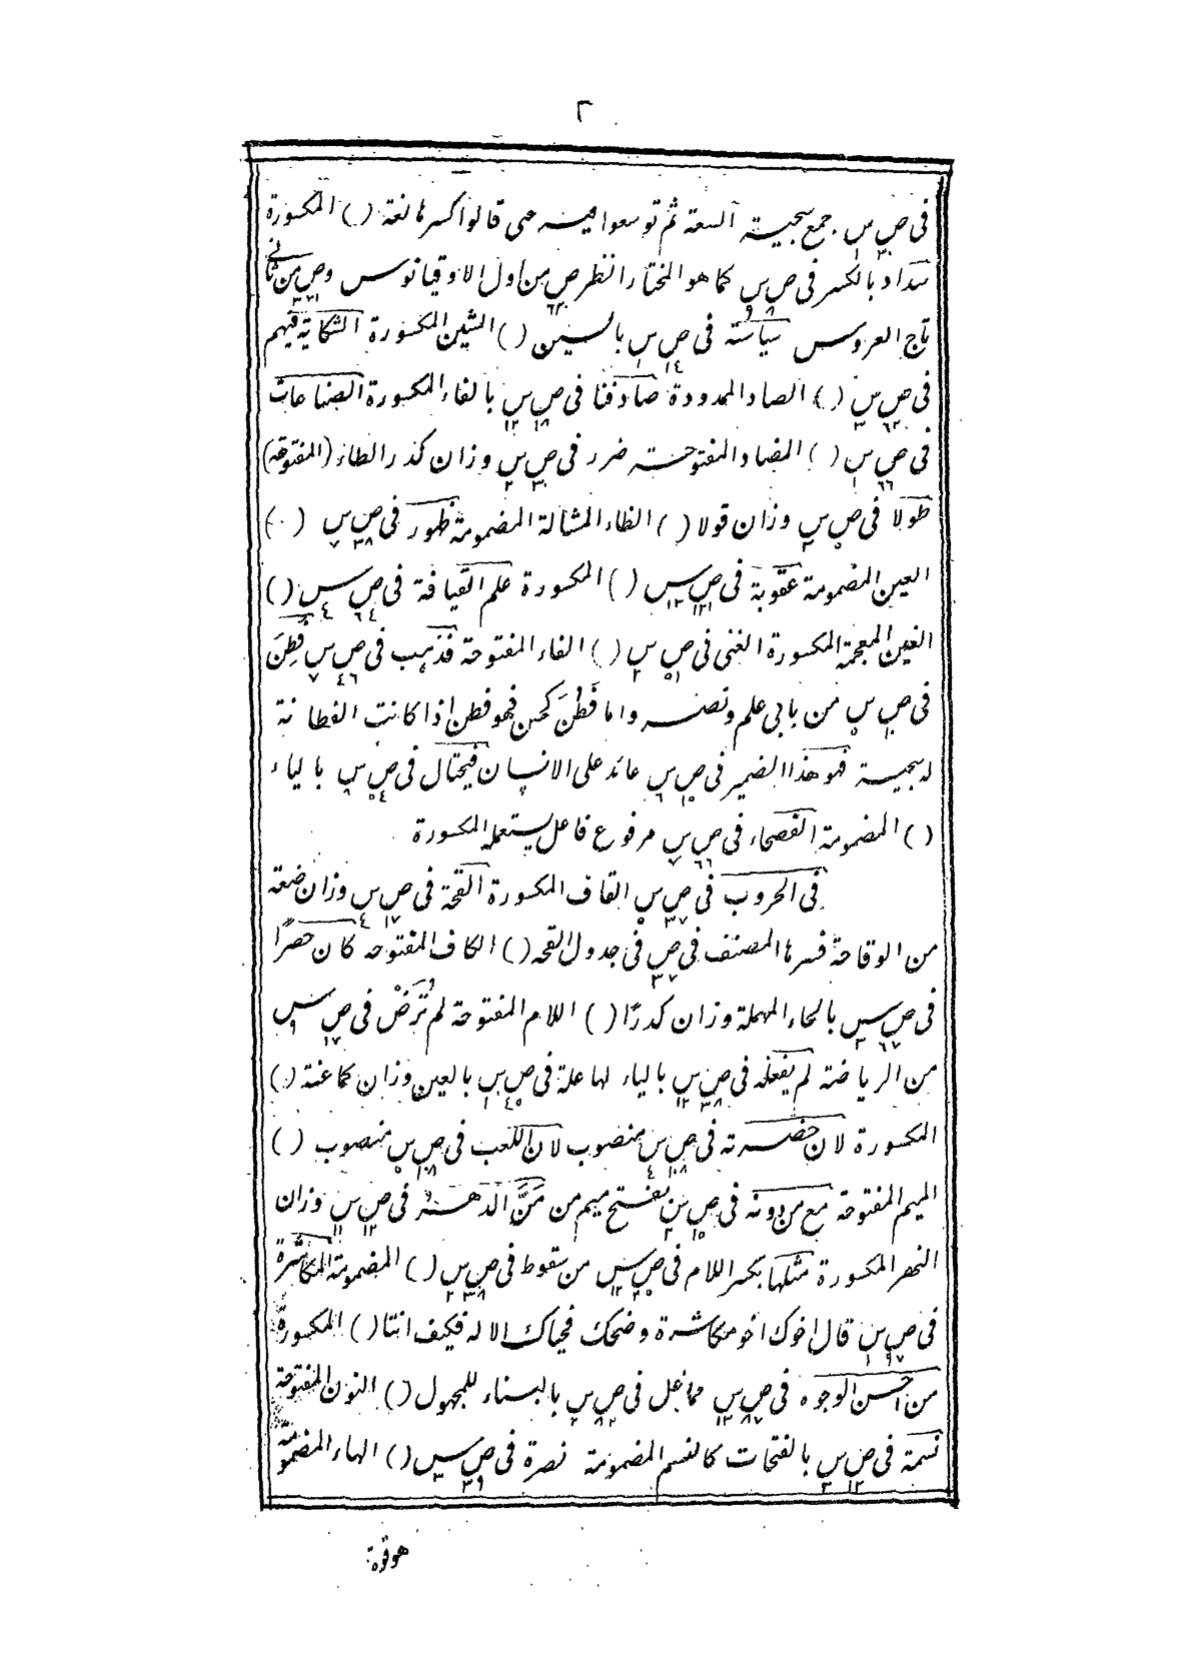 ٢
في ص س جمع سجية السعة ثم توسعوا فيه حتى قالوا كسرها لغة ( ) المكسورة
سداد بالكسر في ص س كما هو المختار انظر ص من اول الاوقيانوس وص من ثاني
تاج العروس سياسة في ص س بالسين ( ) الشين المكسورة الشكاية فيهم
في ص س ( ) الصاد الممدودة صادفنا في ص س بالفاء المكسورة الصناعات
في ص س ( ) الضاد المفتوحة ضرر في ص س وزان كدر الطاء (المفتوحة)
طولا في ص س وزان قولا ( ) الظاء المشالة المضمومة ظهور في ص س ( )
العين المضمومة عقوبة في ص س ( ) المكسورة علم القيافة في ص س ( )
الغين المعجمة المكسورة الغنى في ص س ( ) الفاء المفتوحة فذهب في ص س فَطِنَ
في ص س من بابي علم ونصر واما فَطُنَ كحسن فهو فطن اذا كانت الفطانة
له سجية فهو هذا الضمير في ص س عائد على الانسان فيحتال في ص س بالياء
( ) المضمومة الفصحاء في ص س مرفوع فاعل يستعمله المكسورة
في الحروب في ص س القاف المكسورة القحة في ص س وزان ضعة
من الوقاحة فسرها المصنف في ص في جدول القحه ( ) الكاف المفتوحه كان حصرًا
في ص س بالحاء المهملة وزان كدرًا ( ) اللام المفتوحة لم تُرَضْ في ص س
من الرياضة لم يفعله في ص س بالياء لها علة في ص س بالعين وزان كماعنة ( )
المكسورة لان حضرته في ص س منصوب لان اللعب في ص س منصوب ( )
الميم المفتوحة مع من دونه في ص س بفتح ميم من مَنَّ الدهر في ص س وزان
النهر المكسورة مثلها بكسر اللام في ص س من سقوط في ص س ( ) المضمومة المكاشرة
في ص س قال اخوك اخو مكاشرة وضحك فحياك الاله فكيف انتا ( ) المكسورة
من احسن الوجوه في ص س مما عل في ص س بالبناء للمجهول ( ) النون المفتوحة
نسمة في ص س بالفتحات كالنسم المضمومة نصرة في ص س ( ) الهاء المضمومة
هوقوة